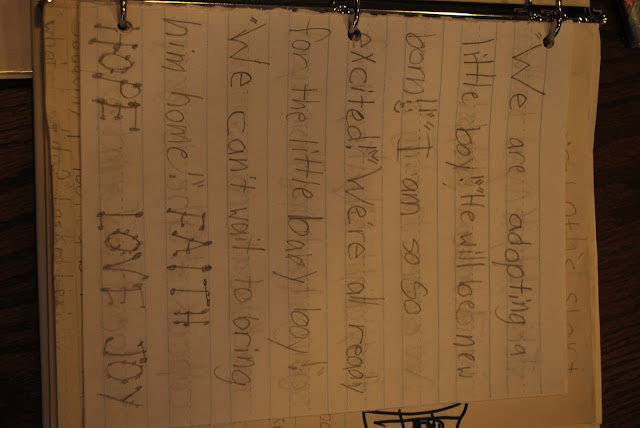 "We are adopting a
little boy!" "He will be new
born!!" "I am so so
excited!" "We're all ready
for the little bany boy!"
"We can't wait to bring
him home!" FAITH
HOPE LOVE JOY